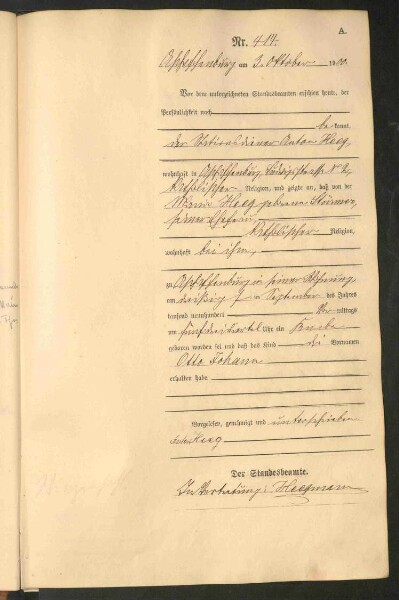 A.
Nr. 414.
Aschaffenburg am 3. Oktober 1900.
Vor dem unterzeichneten Standesbeamten erschien heute, der
Persönlichkeit nach
bekannt,
der Stationsdiener Anton Heeg,
wohnhaft in Aschaffenburg,
katholischer Religion, und zeigte an, daß von der
Maria Heeg, geborene
seiner Ehefrau,
katholischer Religion,
wohnhaft bei ihm,
zu Aschaffenburg in seiner Wohnung,
am dreißigsten September des Jahres
tausend neunhundert Vormittags
um Uhr ein Knabe
geboren worden sei und daß das Kind die Vornamen
Otto Johann
erhalten habe
Vorgelesen, genehmigt und unterschrieben
Heeg
Der Standesbeamte.
In Vertretung: Hegmann